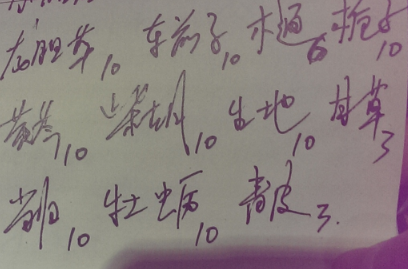 龙胆草10 车前子10 木通6 栀子10
黄芩10 柴胡10 生地10 甘草3
当归10 牡蛎10 青皮3.